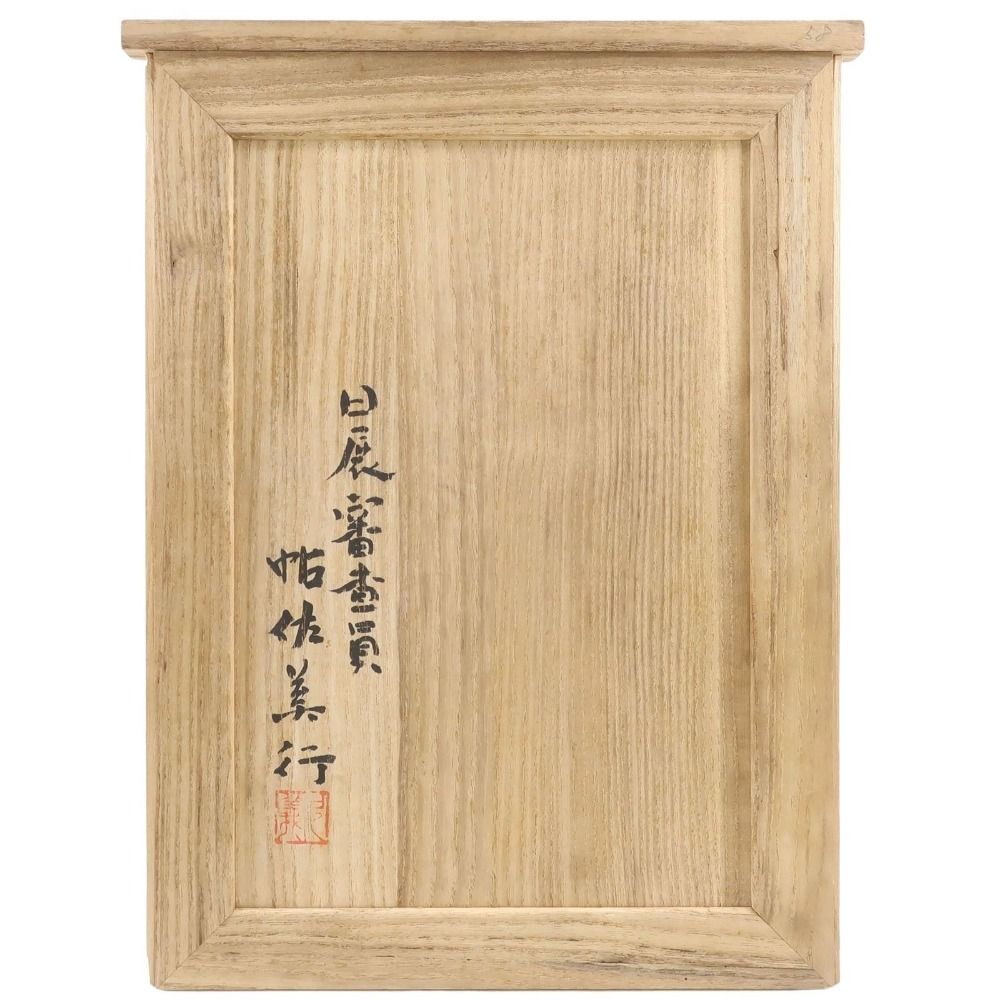 日展審査員
帖佐美行